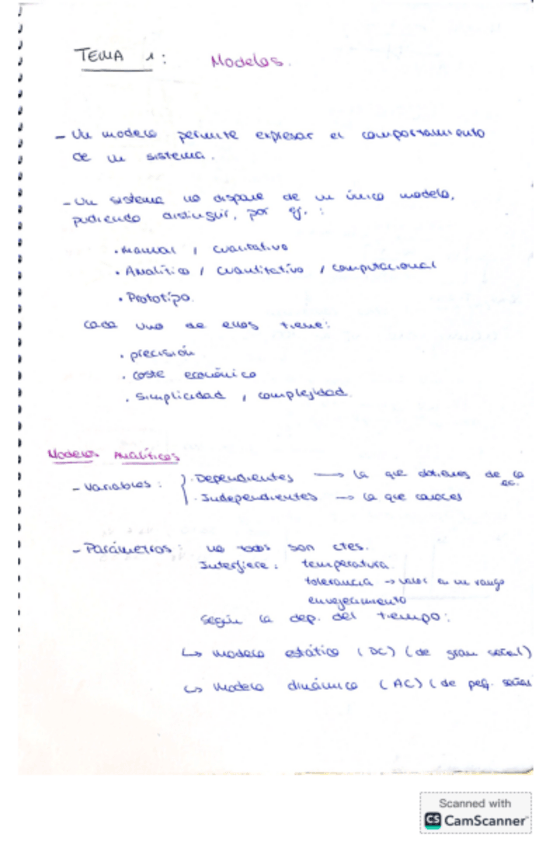 TEMA 1: Modelos.
- Un modelo permite expresar el comportamiento
de un sistema.
- Un sistema no dispone de un único modelo,
pudiendo distinguir, por ej. :
• Manual / cualitativo
• Analítico / cuantitativo / computacional
• Prototipo
cada uno de ellos tiene:
• precisión
• coste económico
• simplicidad / complejidad
Modelos Analíticos
- Variables: • Dependientes → la que obtienes de la
ec.
• Independientes → la que conoces
- Parámetros: no todos son ctes.
Interfiere: temperatura
tolerancia → valor en un rango
envejecimiento
Según la dep. del tiempo:
↳ modelo estático (DC) (de gran señal)
↳ modelo dinámico (AC) (de peq. señal
Scanned with
CS CamScanner